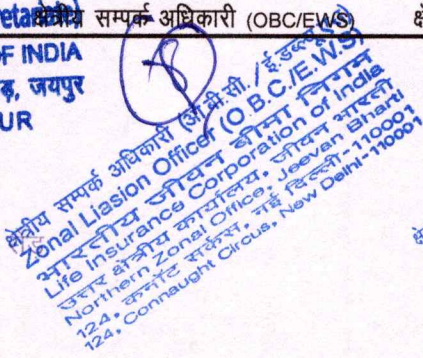 क्षेत्रीय सम्पर्क अधिकारी (OBC/EWS)
OF INDIA
जयपुर
UR
क्षेत्रीय सम्पर्क अधिकारी (ओ.बी.सी. / ई.डब्ल्यू.एस)
Zonal Liasion Officer (O.B.C./E.W.S)
भारतीय जीवन बीमा निगम
Life Insurance Corporation of India
उत्तर क्षेत्रीय कार्यालय, जीवन भारती
Northern Zonal Office, Jeevan Bharti
124, कनॉट सर्कस, नई दिल्ली-110001
124, Connaught Circus, New Delhi-110001